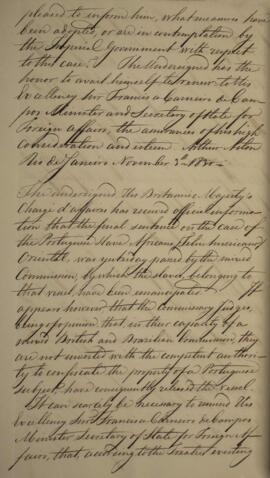 pleased to inform him, what measures have
been adopted, or are in contemplation by
the Imperial Government with respect
to this case. The Undersigned has the
honor to avail himself to renew to His
Excellency Snr Francisco Carneiro de Cam-
pos Minister and Secretary of State for
Foreign Affairs, the assurances of his high
consideration and esteem. Arthur Aston
Rio de Janeiro November 3d 1830
The Undersigned His Britannic Majesty's
Chargé d'affaires has received official informa-
tion that the final sentence on the case of
the Portuguese Slave
Oriental, was yesterday passed by the mixed
Commission, by which the slaves, belonging to
that vessel, have been emancipated. It
appears however that the Commissary Judges,
being of opinion that in their capacity of a
mixed British and Brazilian Commission, they
are not invested with the competent authori-
ty to confiscate the property of a Portuguese
Subject, have consequently released the vessel.
It can scarcely be necessary to remind His
Excellency Snr Francisco Carneiro de Campos
Minister Secretary of State for Foreign Af-
fairs, that according to the Treaties existing